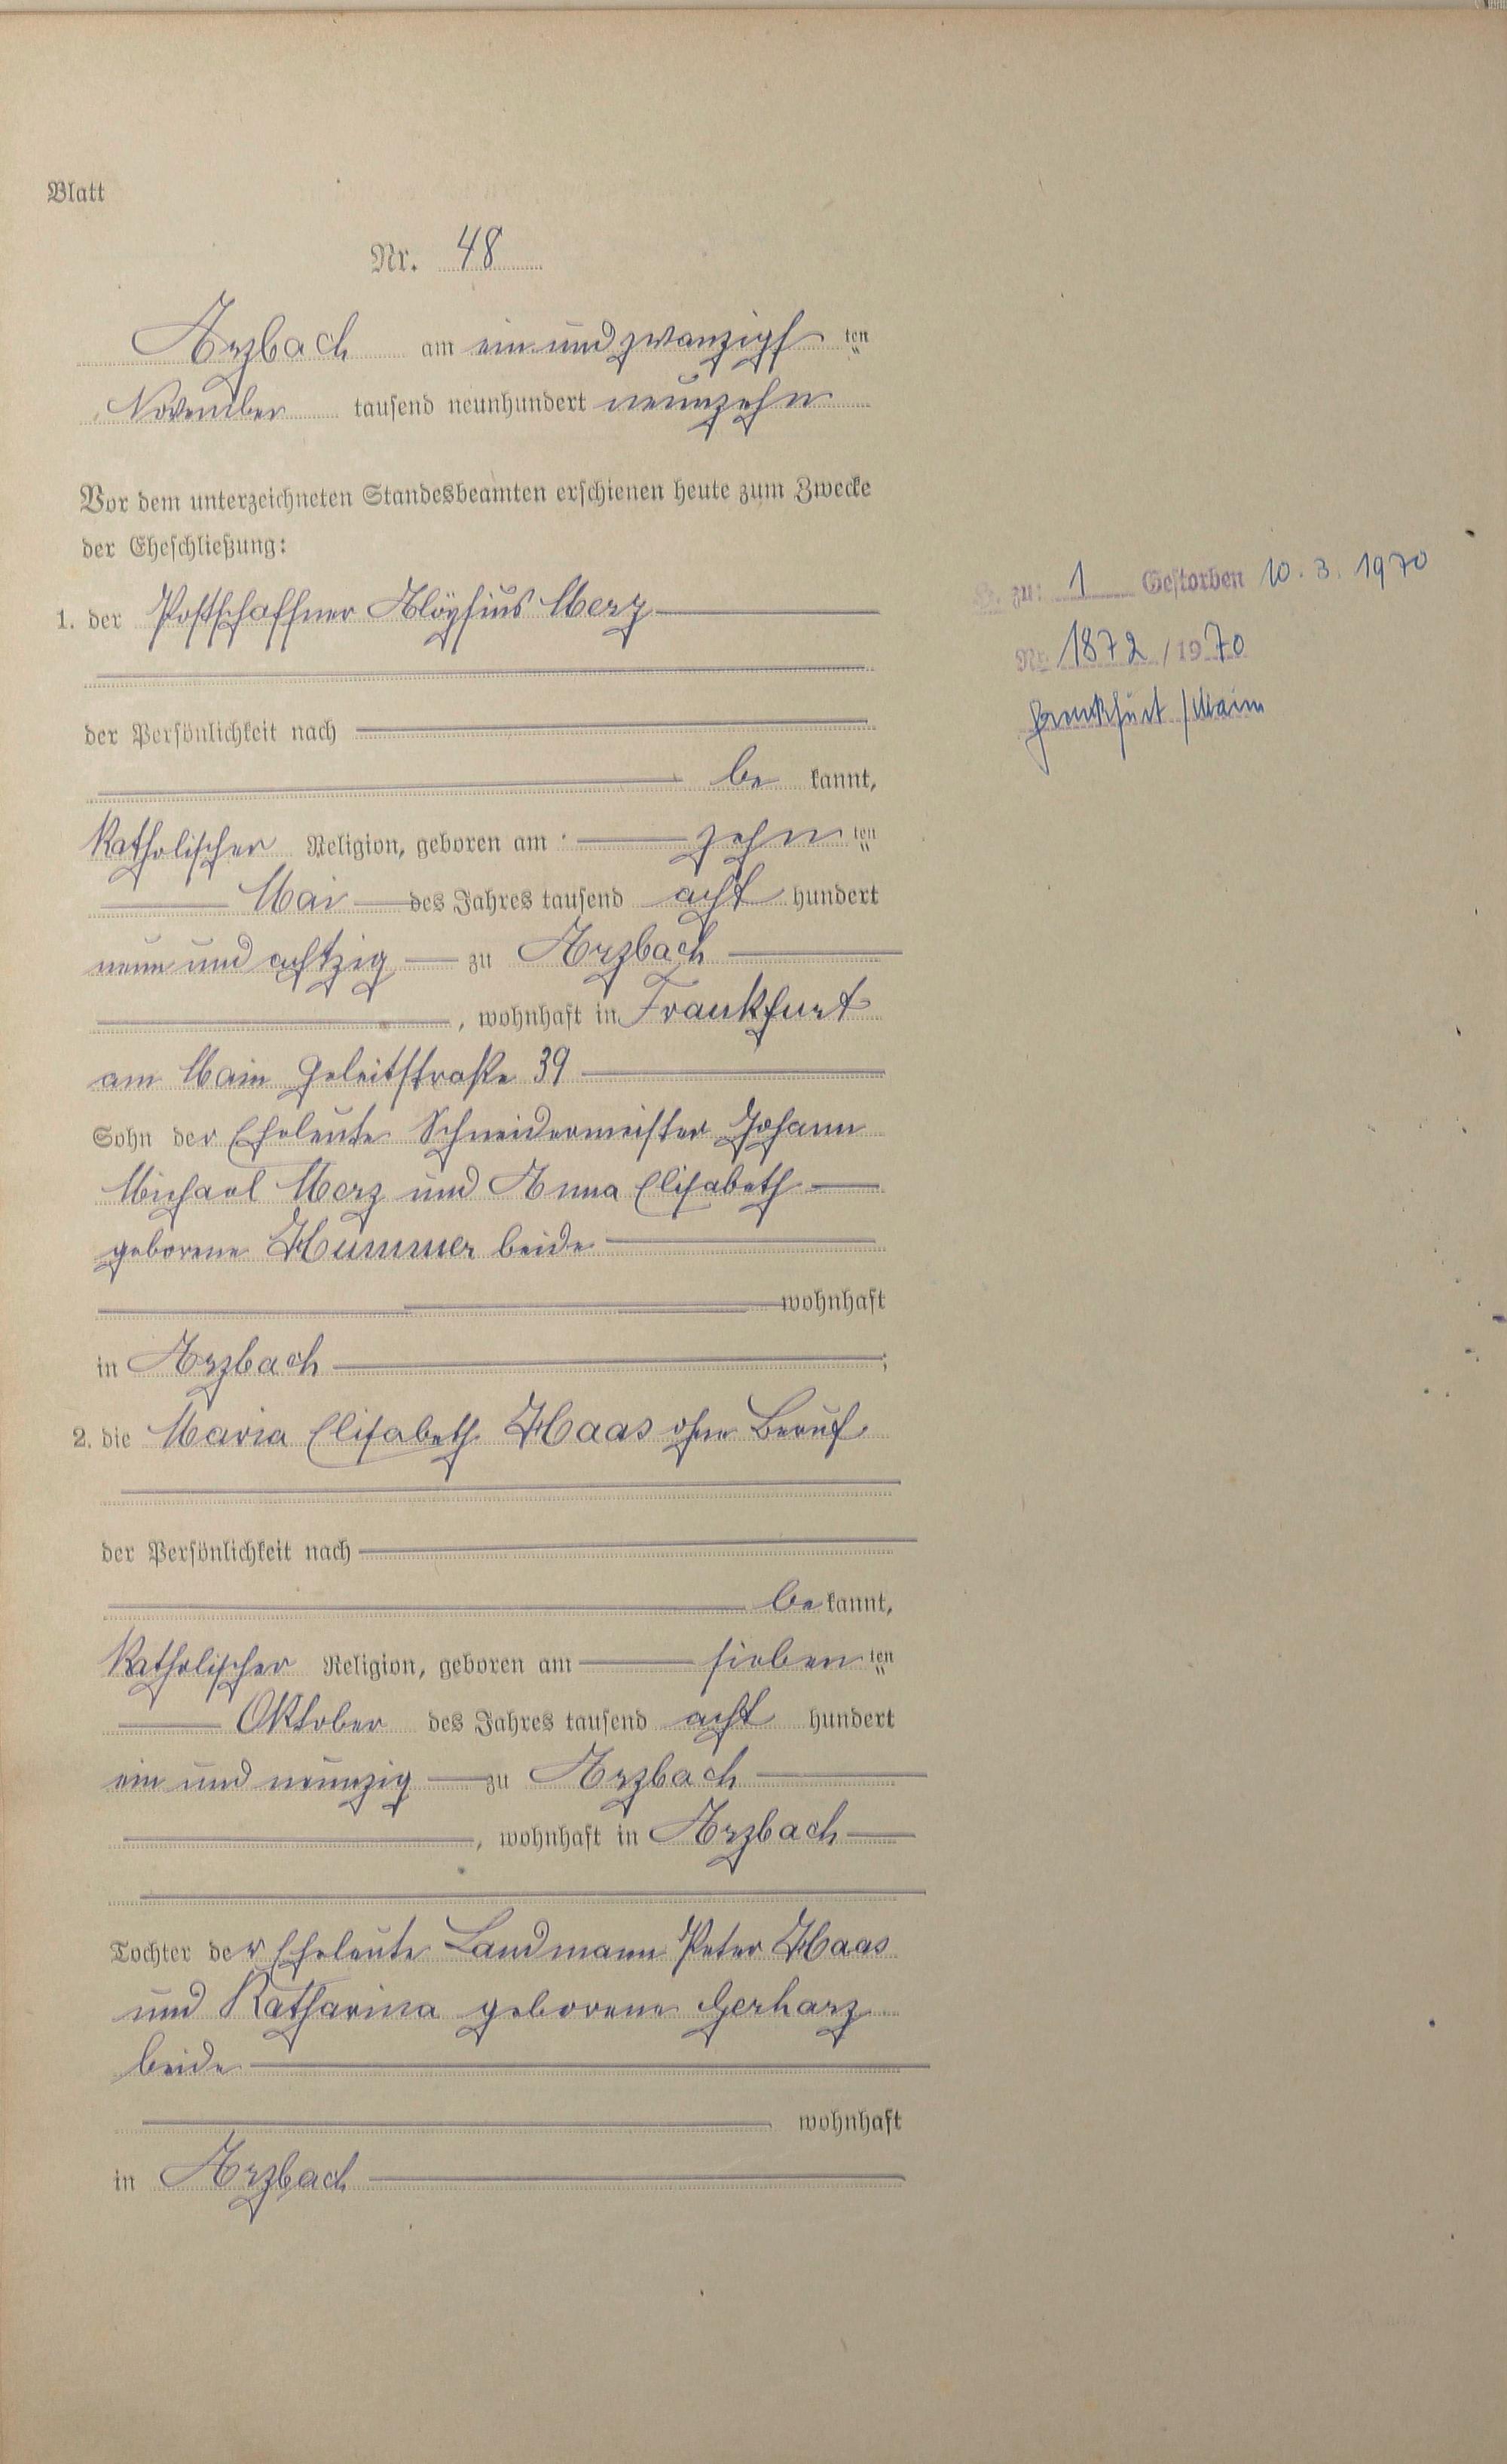 Blatt
Nr. 48
Arzbach am ein und zwanzigsten
November tausend neunhundert neunzehn
Vor dem unterzeichneten Standesbeamten erschienen heute zum Zwecke
der Eheschließung:
1. der Postschaffner Aloysius Merz
der Persönlichkeit nach
be kannt,
katholischer Religion, geboren am zehn ten
Mai des Jahres tausend acht hundert
neun und achtzig zu Arzbach
, wohnhaft in Frankfurt
am Main Geleitstraße 39
Sohn der Eheleute Schneidermeister Johann
Michael Merz und Anna Elisabeth
geborene Hummer beide
wohnhaft
in Arzbach ;
2. die Maria Elisabeth Haas ohne Beruf
der Persönlichkeit nach
be kannt,
katholischer Religion, geboren am sieben ten
Oktober des Jahres tausend acht hundert
ein und neunzig zu Arzbach
, wohnhaft in Arzbach
Tochter der Eheleute Landmann Peter Haas
und Katharina geborene Gerharz
beide
wohnhaft
in Arzbach
zu: 1 Gestorben 10.3.1970
Nr. 1872/1970
Frankfurt/Main